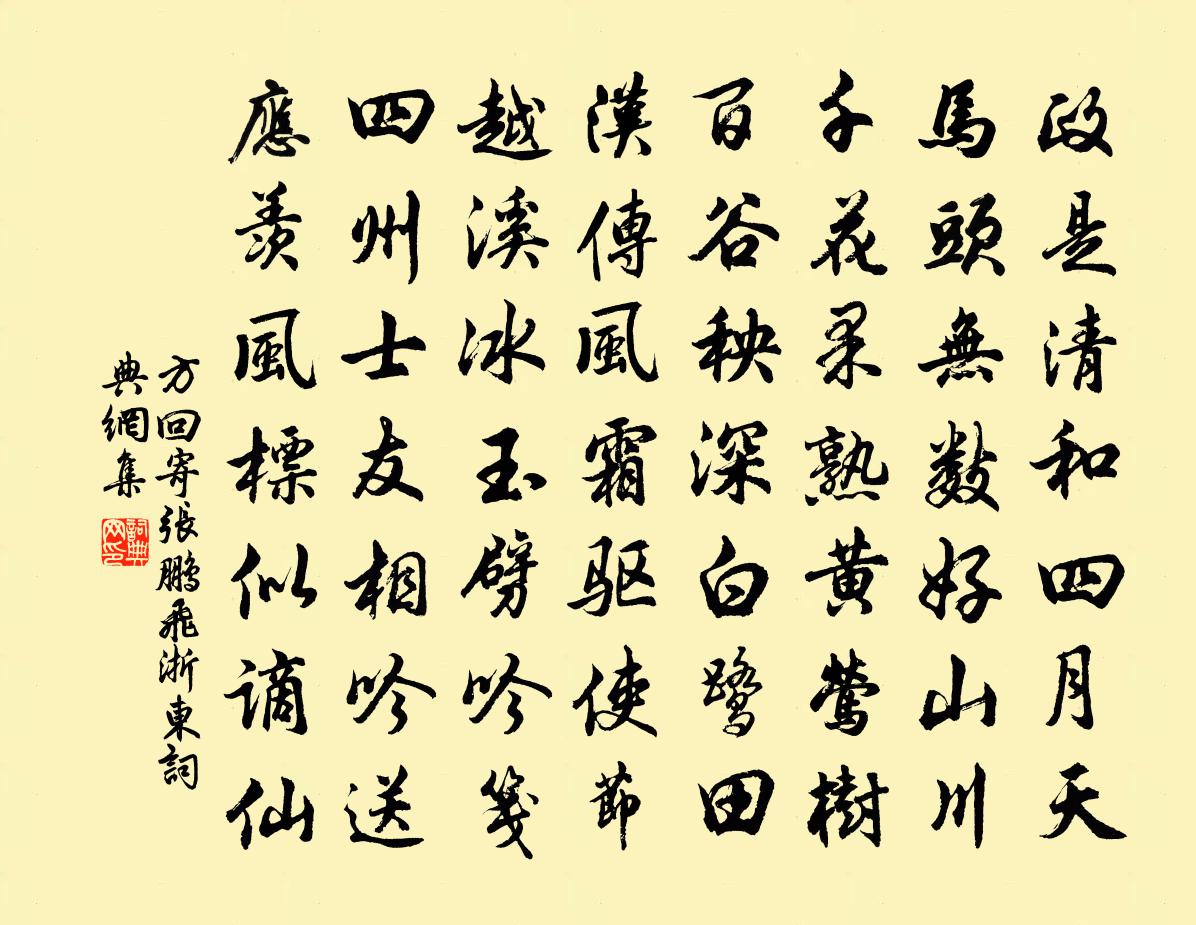 政是清和四月天
馬頭無數好山川
千花果熟黄鶯樹
百谷秧深白鷺田
漢傳風霜驱使節
越溪冰玉劈吟箋
四州士友相吟送
應羨風標似謫仙
方回寄張鵬飛浙東詞
典網集
詞典网印